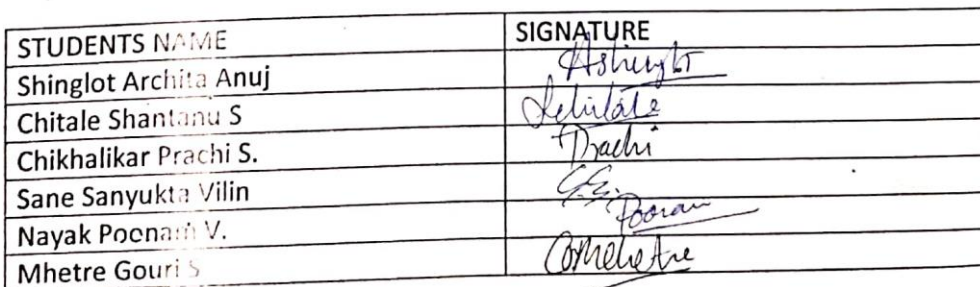 STUDENTS NAME SIGNATURE
Shinglot Archita Anuj AShinglot
Chitale Shantanu S SChitale
Chikhalikar Prachi S. Prachi
Sane Sanyukta Vilin
Nayak Poonam V. Poonam
Mhetre Gouri S GSMhetre